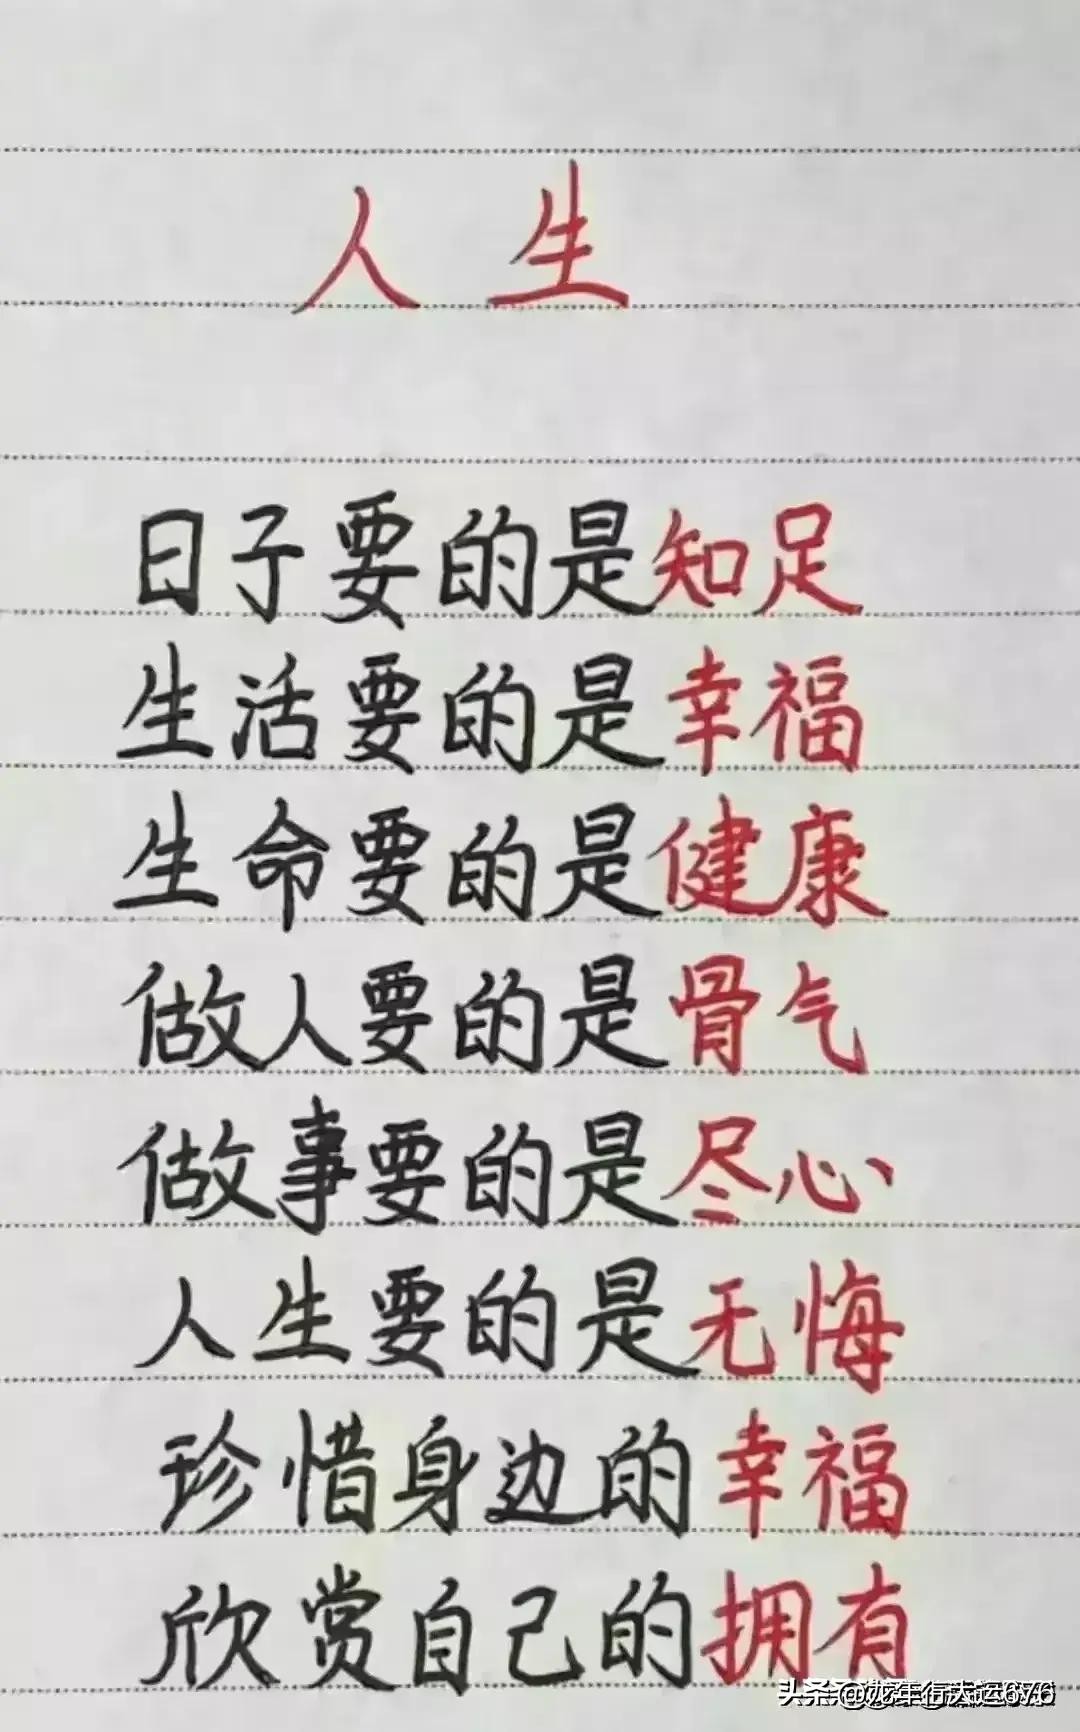 人生
日子要的是知足
生活要的是幸福
生命要的是健康
做人要的是骨气
做事要的是尽心
人生要的是无悔
珍惜身边的幸福
欣赏自己的拥有
头条@龙年行大运676